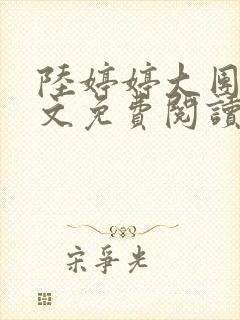 陸婷婷大圍
文免費閱讀
宋爭光